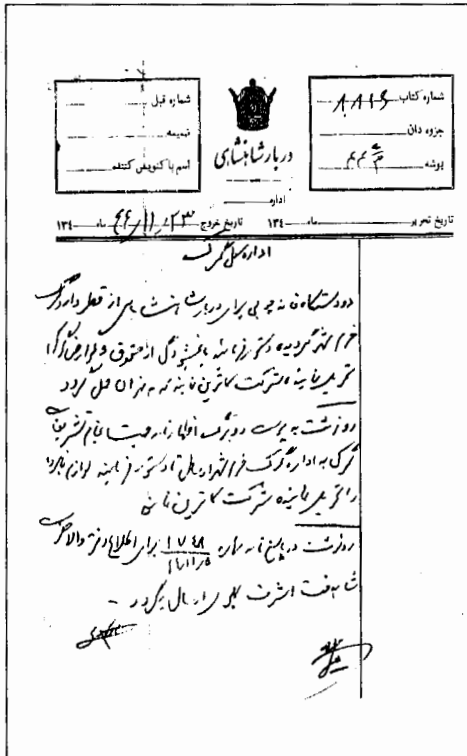 شماره کتاب ۸۸۱۶
جزوه دان
پوشه
دربار شاهنشاهی
شماره قبل
ضمیمه
اسم پاکنویس کننده
اداره
تاریخ تحریر ماه ۱۳۴
تاریخ خروج ۲۳ ماه ۱۳۴
اداره کل گمرک
دو دستگاه خانه چوبی برای دربار شاهنشاهی از قطر وارد گمرک
خرمشهر گردیده دستور فرمایند با بخشودگی از حقوق و عوارض گمرکی
تحویل نماینده شرکت کاترین نمایند که به تهران حمل گردد
رونوشت به پیوست دو برگ اظهارنامه جهت انجام تشریفات
گمرکی به اداره گمرک خرمشهر ارسال تا دستور فرمایند لوازم نامبرده
را تحویل نماینده شرکت کاترین نمایند
رونوشت در پاسخ نامه شماره ۱۷۴۸ برای اطلاع دفتر والاحضرت
شاهدخت اشرف پهلوی ارسال میگردد -